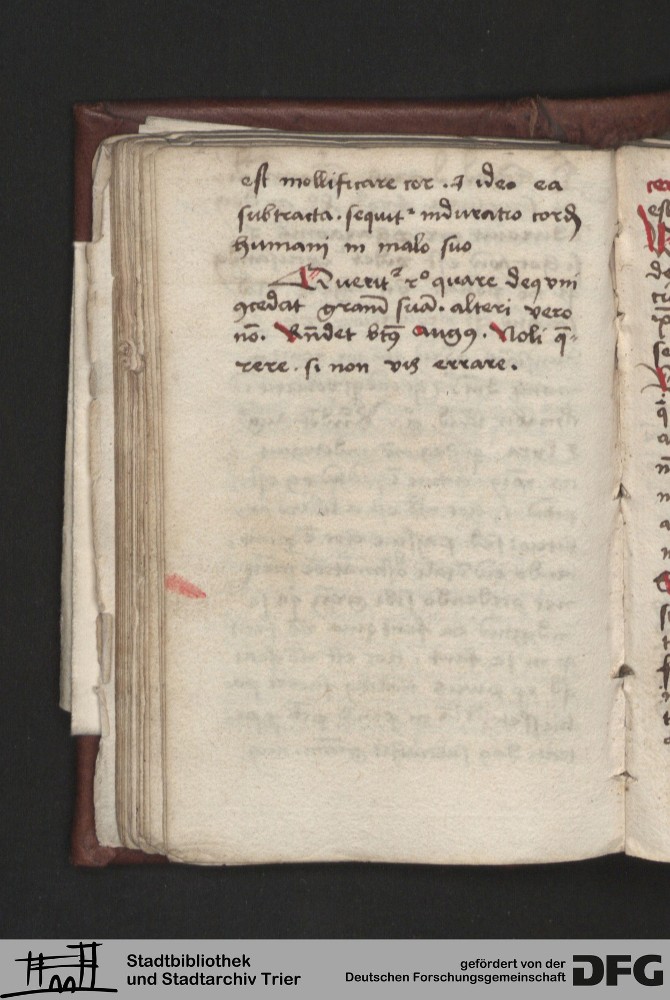 est mollificare cor . et ideo ea
subtracta . sequit᷑ induratio cordꝭ
humani in malo suo
Querit᷑ rᵒ quare deꝰ vni
ꝯcedat gram̄ suā . alteri vero
nō . Rn̄det btꝰ Augꝰ . Noli q̄-
rere . si non vis errare .
Stadtbibliothek
und Stadtarchiv Trier
gefördert von der
Deutschen Forschungsgemeinschaft
DFG